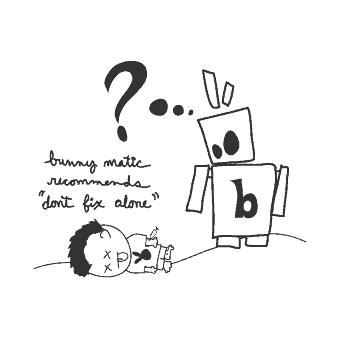 ?...
bunny matic
recommends
"dont fix alone"
b